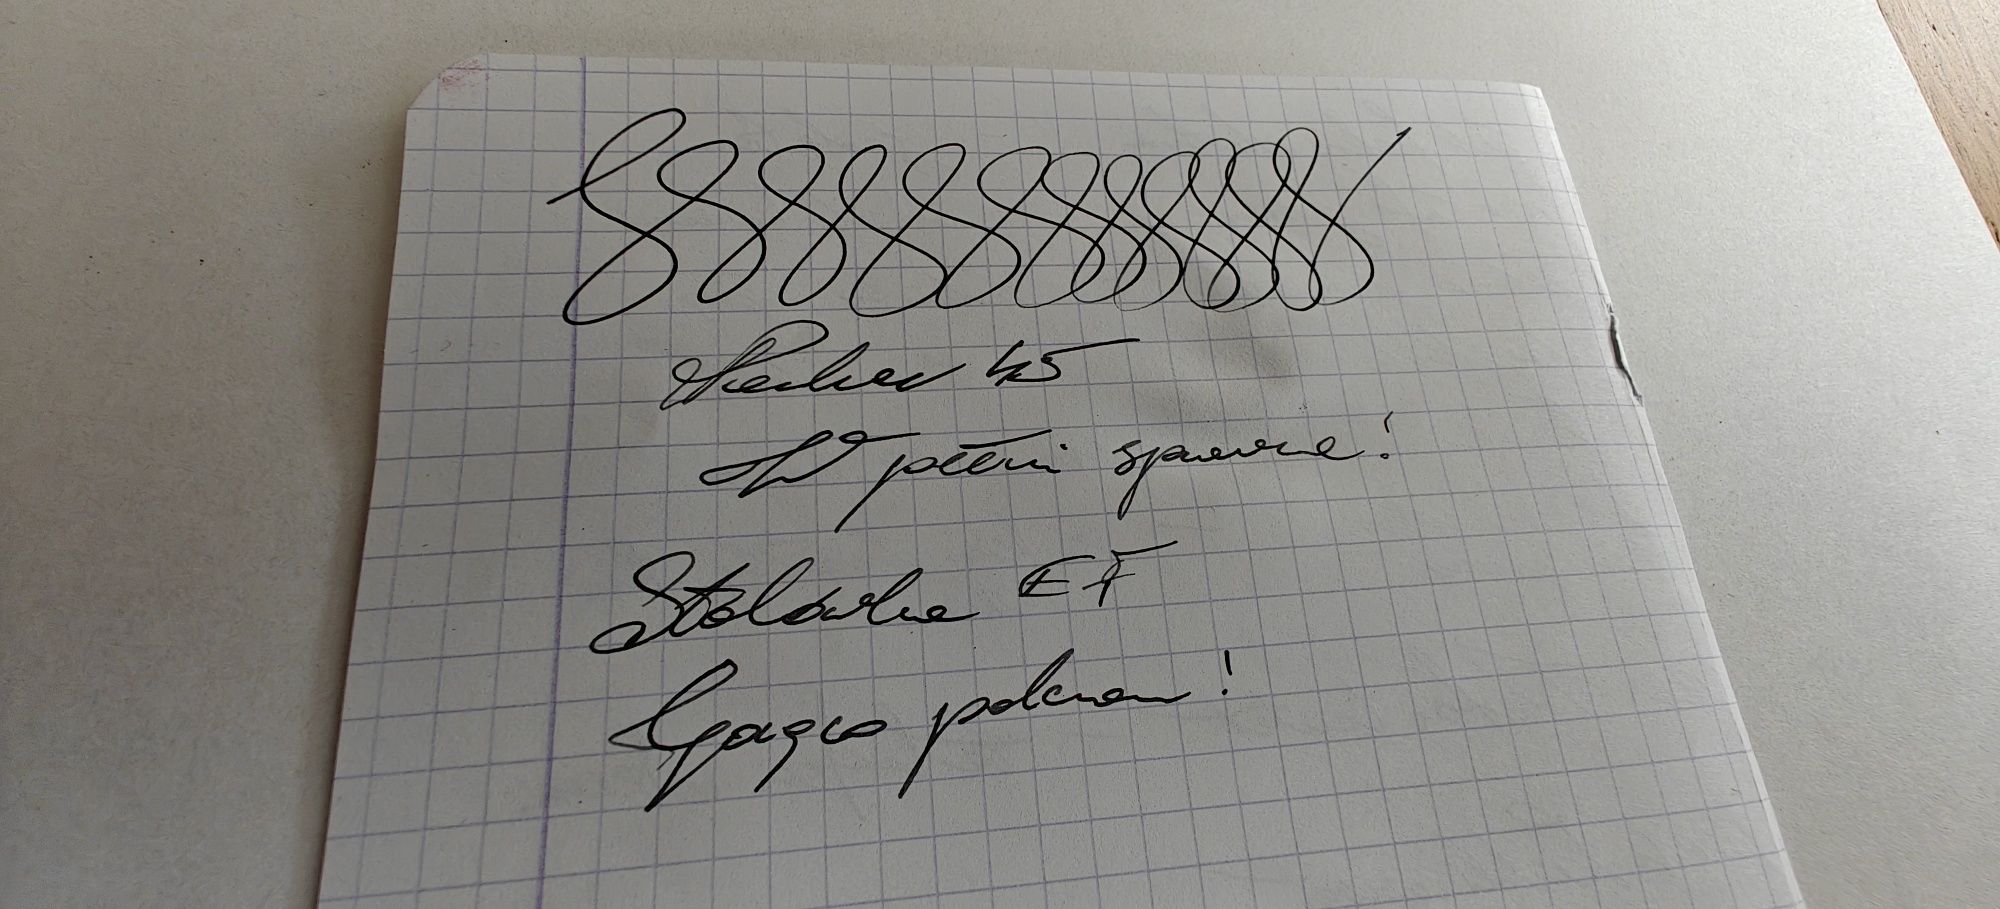 Parker 45
W pełni sprawne!
Stalówka EF
Gorąco polecam!